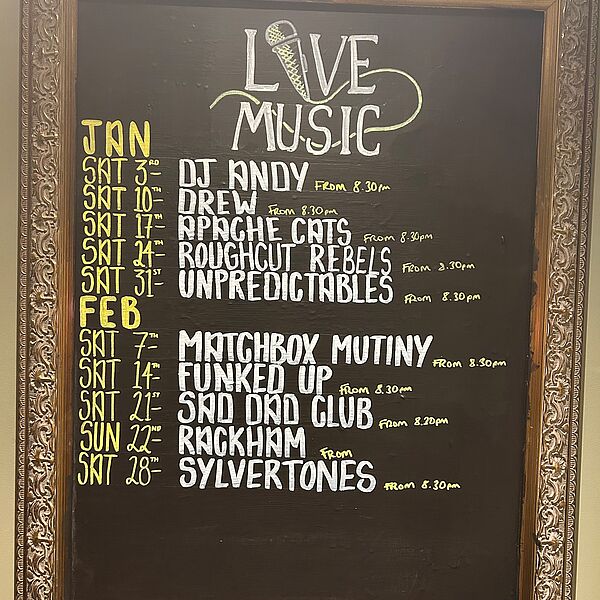 LIVE
MUSIC
JAN
SAT 3RD- DJ ANDY FROM 8.30pm
SAT 10TH- DREW FROM 8.30pm
SAT 17TH- APACHE CATS FROM 8.30pm
SAT 24TH- ROUGHCUT REBELS FROM 8.30pm
SAT 31ST- UNPREDICTABLES FROM 8.30pm
FEB
SAT 7TH- MATCHBOX MUTINY FROM 8.30pm
SAT 14TH- FUNKED UP FROM 8.30pm
SAT 21ST- SAD DAD CLUB FROM 8.30pm
SUN 22ND- RACKHAM FROM
SAT 28TH- SYLVERTONES FROM 8.30pm